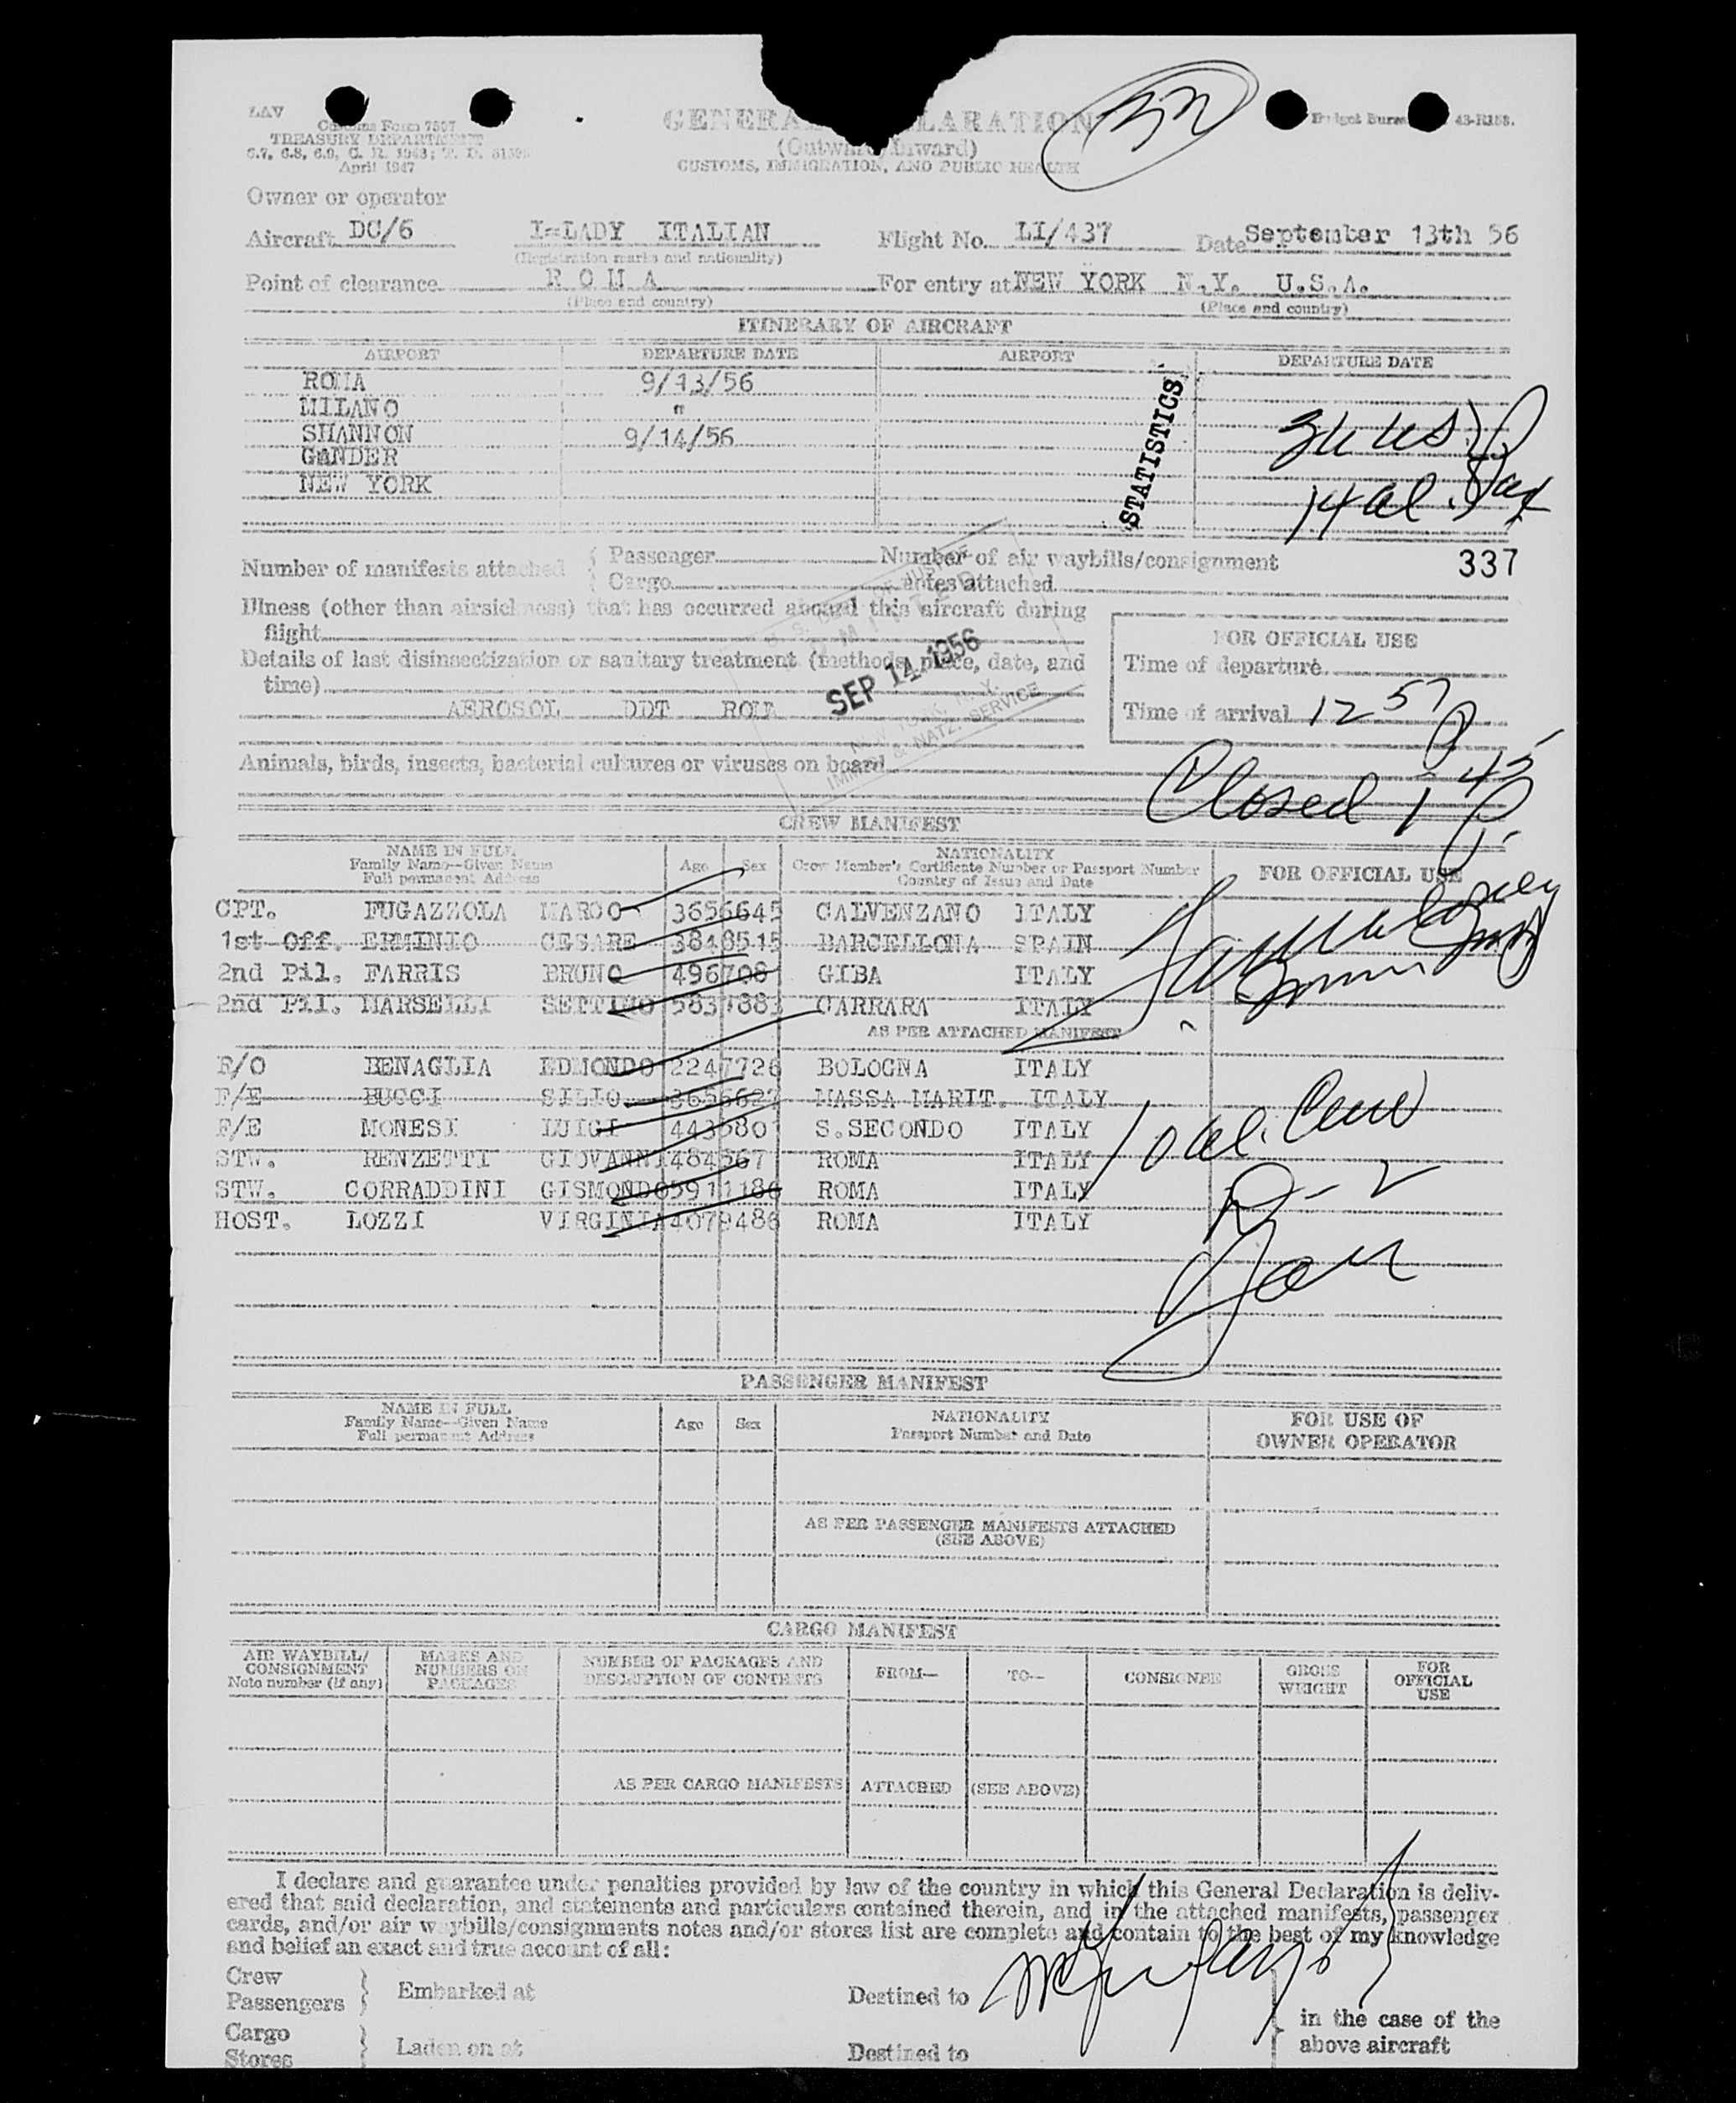 LAV
Customs Form 7507
TREASURY DEPARTMENT
6.7, 6.8, 6.9, C. R. 1943; T. D.
April 1947
GENERAL DECLARATION
(Outward/Inward)
CUSTOMS, IMMIGRATION, AND PUBLIC HEALTH
Budget Bureau 43-R158.
Owner or operator
Aircraft DC/6 I-LADY ITALIAN Flight No. LI/437 Date September 13th 56
(Registration marks and nationality)
Point of clearance ROMA For entry at NEW YORK N.Y. U.S.A.
(Place and country) (Place and country)
ITINERARY OF AIRCRAFT
AIRPORT DEPARTURE DATE AIRPORT DEPARTURE DATE
ROMA 9/13/56
MILANO "
SHANNON 9/14/56
GANDER
NEW YORK
STATISTICS
14 al. Pax
Number of manifests attached { Passenger Number of air waybills/consignment
{ Cargo notes attached
337
Illness (other than airsickness) that has occurred aboard this aircraft during
flight
Details of last disinsectization or sanitary treatment (methods, place, date, and
time)
AEROSOL DDT ROMA
SEP 14 1956
NEW YORK, N.Y.
IMM. & NATZ. SERVICE
FOR OFFICIAL USE
Time of departure
Time of arrival 12 57
Animals, birds, insects, bacterial cultures or viruses on board
Closed 1 45
CREW MANIFEST
NAME IN FULL
Family Name--Given Name
Full permanent Address
Age Sex
NATIONALITY
Crew Member's Certificate Number or Passport Number
Country of Issue and Date
FOR OFFICIAL USE
CPT. FUGAZZOLA MARCO 3656645 CALVENZANO ITALY
1st Off. ERMINIO CESARE 3848515 BARCELLONA SPAIN
2nd Pil. FARRIS BRUNO 496708 GIBA ITALY
2nd Pil. MARSELLI SETTIMO 5837883 CARRARA ITALY
AS PER ATTACHED MANIFEST
F/O BENAGLIA EDMONDO 2247726 BOLOGNA ITALY
F/E BUCCI SILIO 3656627 MASSA MARIT. ITALY
F/E MONESI LUIGI 4436801 S.SECONDO ITALY
STW. RENZETTI GIOVANNI 484567 ROMA ITALY
STW. CORRADDINI GISMONDO 5911186 ROMA ITALY
HOST. LOZZI VIRGINIA 4079486 ROMA ITALY
10 al. Crew
D-2
PASSENGER MANIFEST
NAME IN FULL
Family Name--Given Name
Full permanent Address
Age Sex
NATIONALITY
Passport Number and Date
FOR USE OF
OWNER OPERATOR
AS PER PASSENGER MANIFESTS ATTACHED
(SEE ABOVE)
CARGO MANIFEST
AIR WAYBILL/
CONSIGNMENT
Note number (if any)
MARKS AND
NUMBERS ON
PACKAGES
NUMBER OF PACKAGES AND
DESCRIPTION OF CONTENTS
FROM— TO— CONSIGNEE
GROSS
WEIGHT
FOR
OFFICIAL
USE
AS PER CARGO MANIFESTS ATTACHED (SEE ABOVE)
I declare and guarantee under penalties provided by law of the country in which this General Declaration is deliv-
ered that said declaration, and statements and particulars contained therein, and in the attached manifests, passenger
cards, and/or air waybills/consignments notes and/or stores list are complete and contain to the best of my knowledge
and belief an exact and true account of all:
Crew
Passengers } Embarked at Destined to
Cargo
Stores } Laden on at Destined to
in the case of the
above aircraft